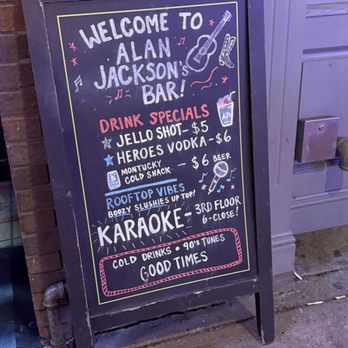 WELCOME TO
ALAN
JACKSON'S
BAR!
DRINK SPECIALS
JELLO SHOT - $5
HEROES VODKA - $6
MONTUCKY
COLD SNACK - $6 BEER
ROOFTOP VIBES
BOOZY SLUSHIES UP TOP!
KARAOKE - 3RD FLOOR
6-CLOSE!
COLD DRINKS • 90'S TUNES
GOOD TIMES